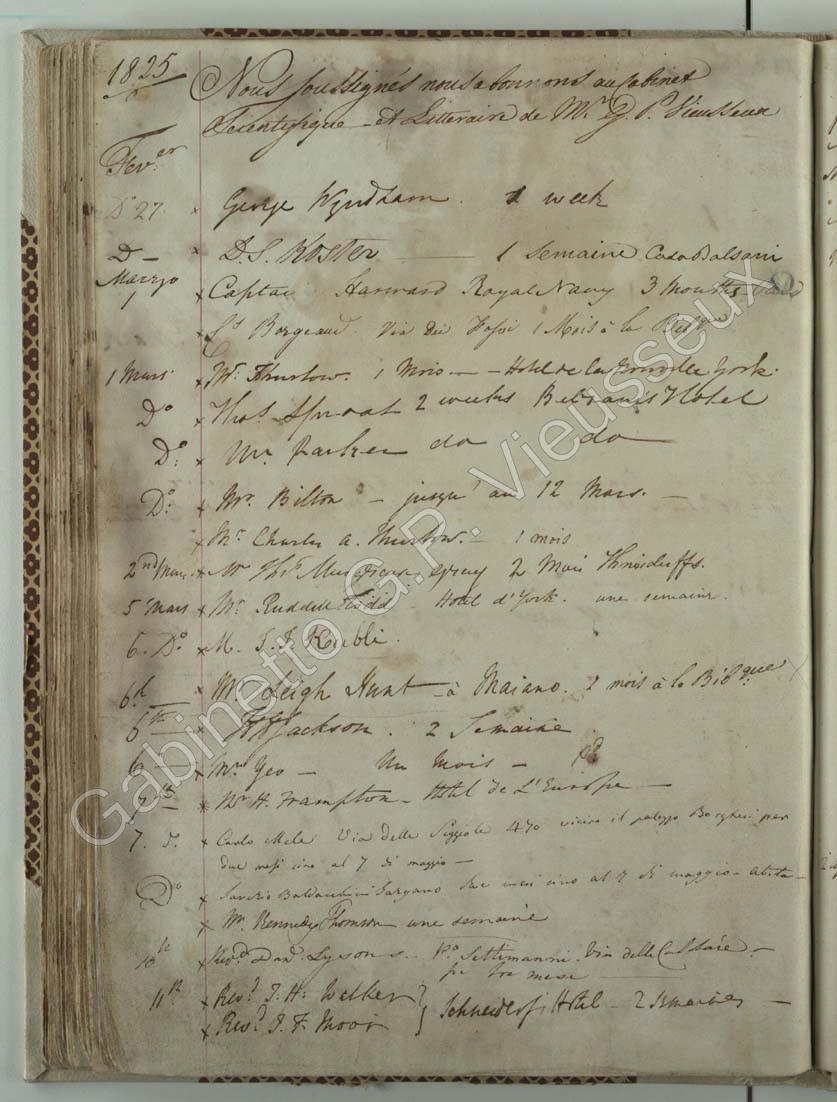 1825 Nous soussignés nous abonnons au Cabinet
Scientifique et Litteraire de Mr. G. P. Vieusseux
Fever
Do 27 x George Wyndham. 1 week
D – x D. S. Koster — 1 Semaine Casa Balsani
Marzo 1 x Captn Harward Royal Navy 3 Months
Borgeaud. Via dei Fossi 1 Mois à la Bibque
1 Mars. x Mr. Thurlow. 1 Mois — Hotel de la York.
Do x Thos. Sproat 2 weeks Hotel
Do. x Mr. Parker do do
Do. x Mr. Bilton – jusqu'au 12 Mars. –
x Mr. Charles A. Thurlow. – 1 mois
2nd Mars x Mr. Thos. 2 Mois
5 Mars x Mr. Ruddell Todd – Hotel d'York. une semaine.
6. Do x M. J. J. Koubli.
6d x Mr. Leigh Hunt – à Maiano. 1 mois à la Bibque
6th – x Jackson. 2 Semaine.
6 – x Mr. Yeo – Un Mois – pd
7th – x Mr. H. Frampton – Hotel de L'Europe –
7. do. x Carlo Mele Via delle 470 vicino il palazzo Borghesi per
due mesi sino al 7 di maggio –
Do x Saverio Baldacchini Gargano due mesi sino al 7 di maggio –
x Mr. Kennedy Thomson une semaine
10th x Revd. Danl. Lysons. Settimanni. Via delle –
per tre mese
11th x Revd. J. H. Welker } Schneiderfs Hotel – 2 Semaines –
x Revd. J. F. Moor
Gabinetto G.P. Vieusseux